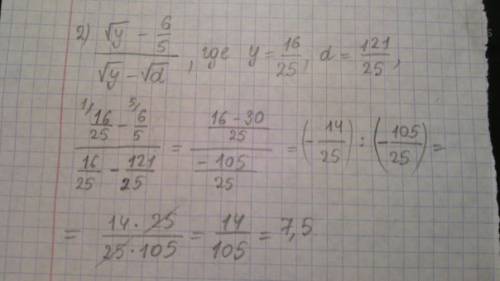 2) (√y − 6/5)/(√y − √d), где y = 16/25, d = 121/25,
(¹⁾16/25 − ⁵⁾6/5)/(16/25 − 121/25) = ((16 − 30)/25)/(−105/25) = (−14/25) : (−105/25) =
= (14 · 25)/(25 · 105) = 14/105 = 7,5